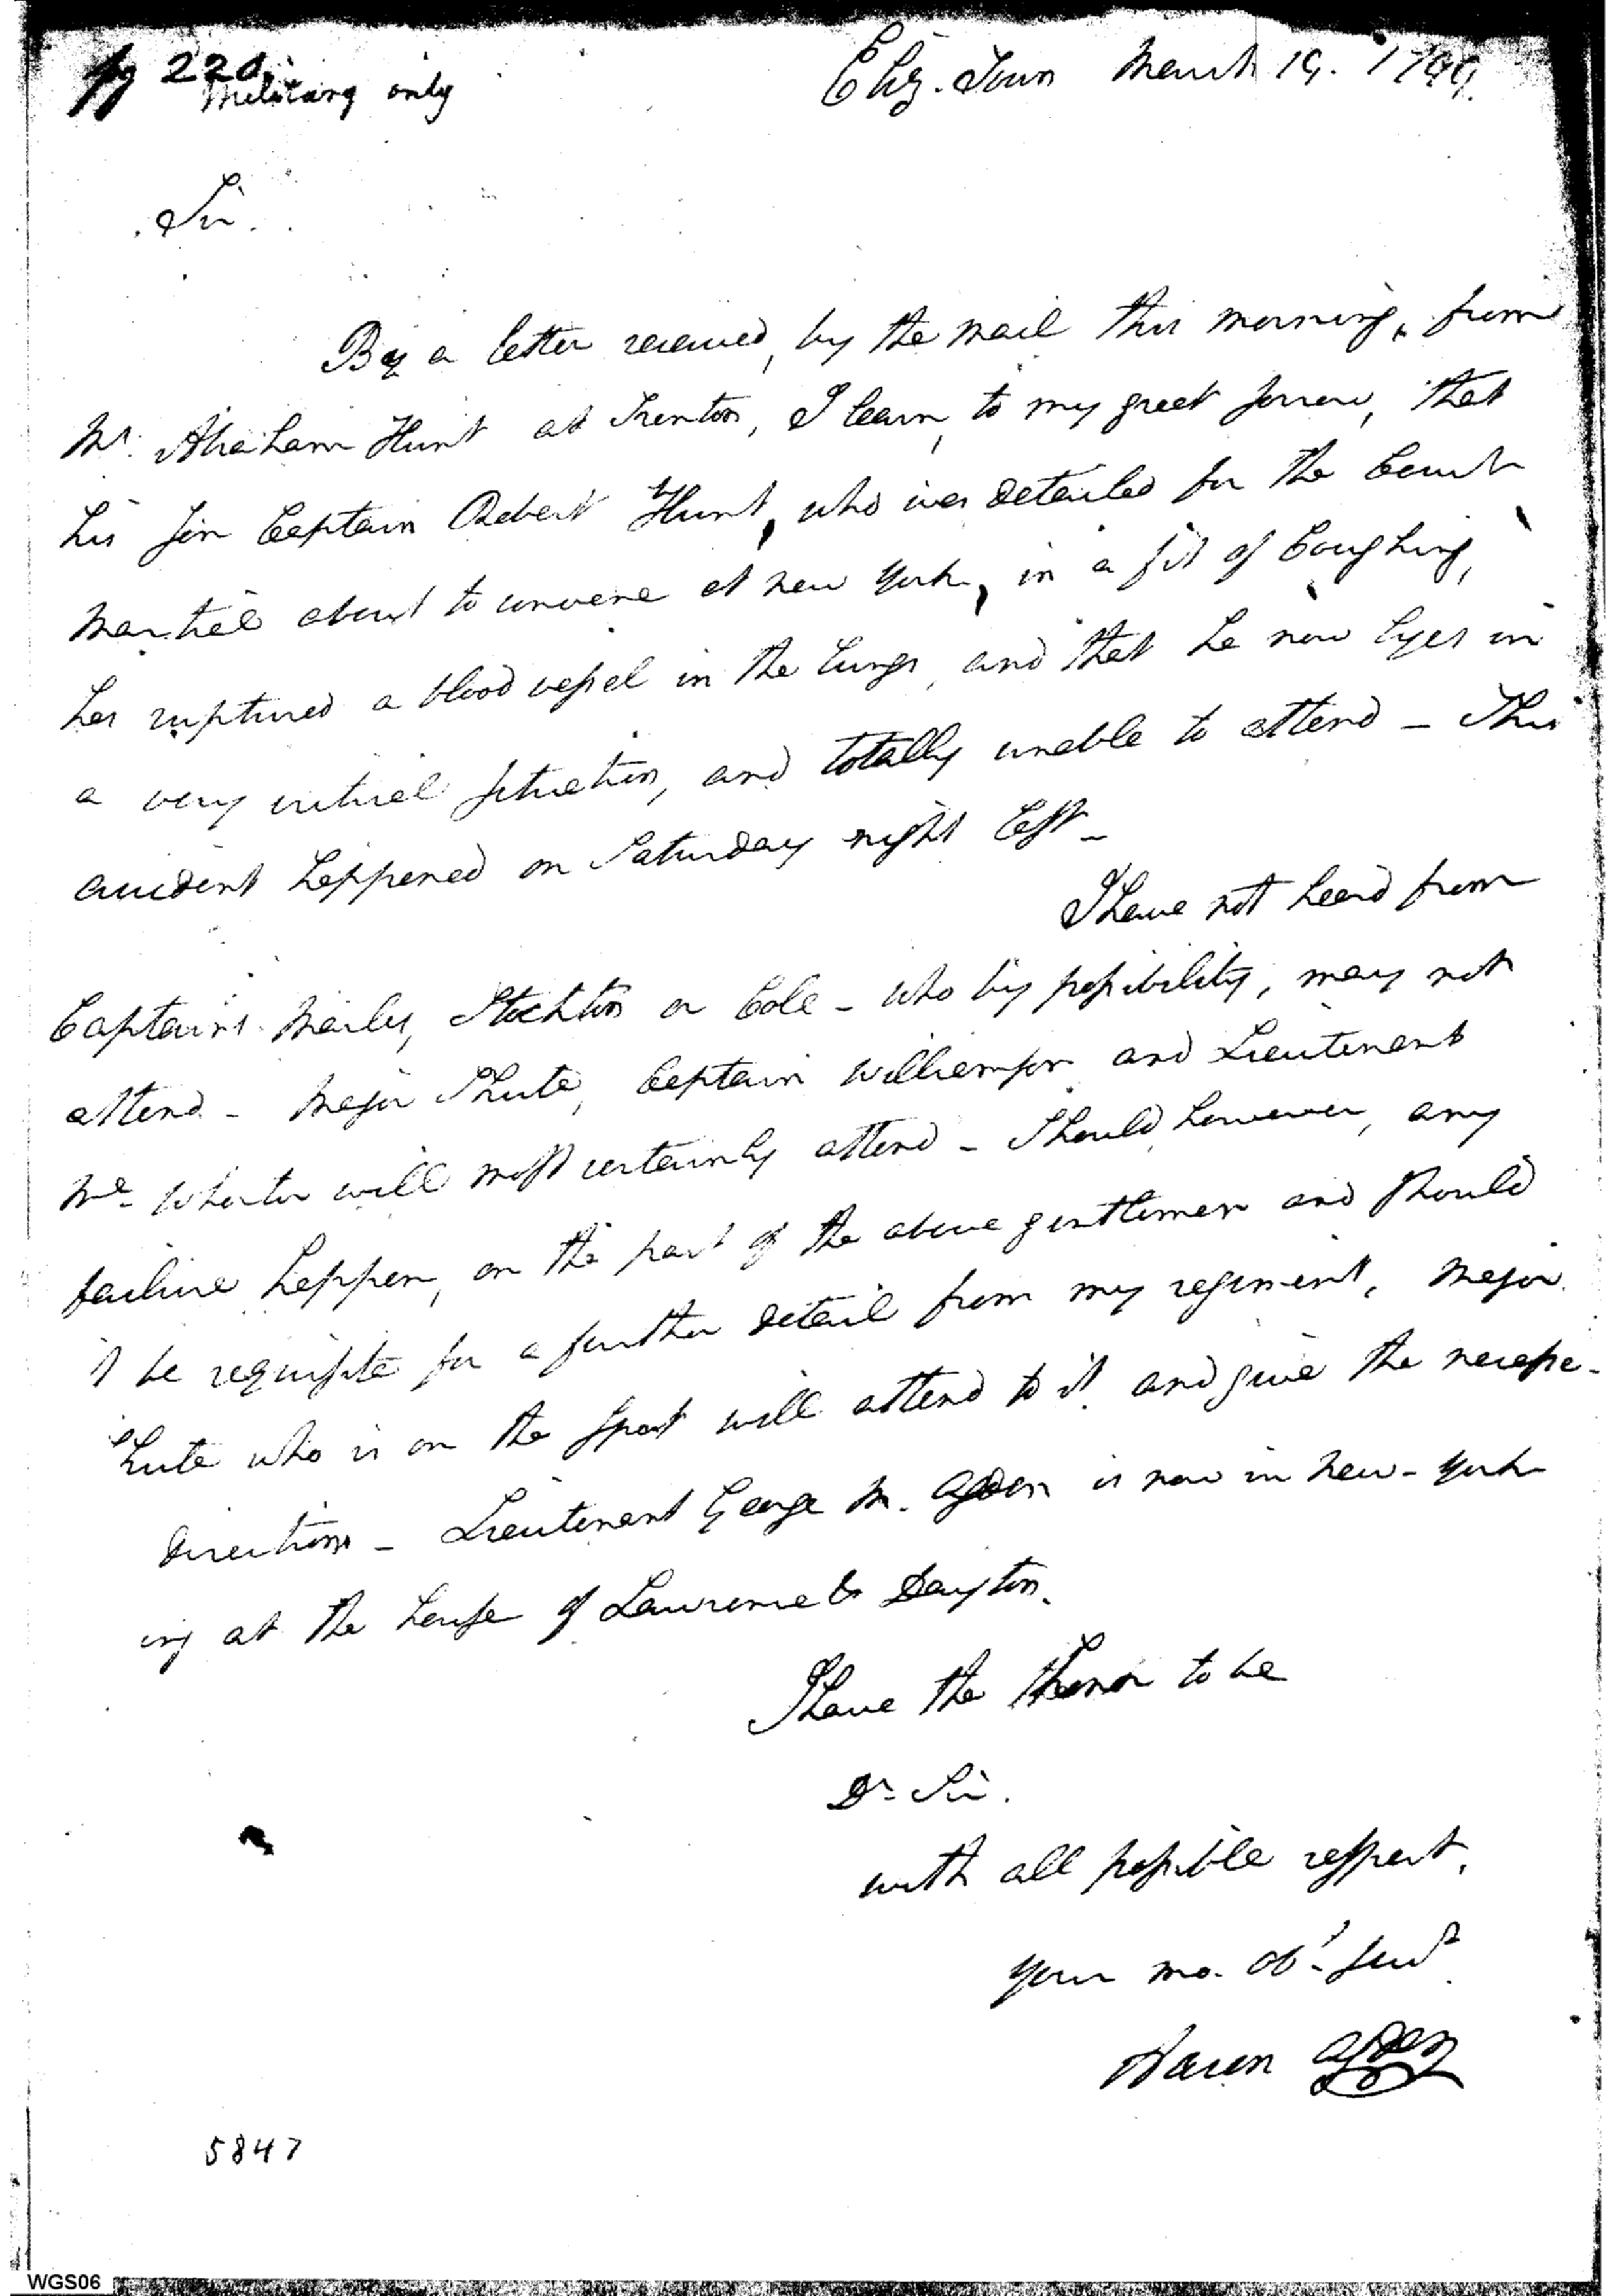 pg 220.
Military only
Eliz. Town March 19. 1799.
Sir.
By a letter received, by the mail this morning, from
Mr. Abraham Hunt at Trenton, I learn, to my great sorrow, that
his son Captain Robert Hunt, who was detailed for the Court
Martial about to convene at New York, in a fit of Coughing,
has ruptured a blood vessel in the lungs, and that he now lyes in
a very critical situation, and totally unable to attend – This
accident happened on Saturday night last –
I have not heard from
Captains Marles, Stockton or Cole – who by possibility, may not
attend – Major Shute, Captain Williamson and Lieutenant
Mc. Whorter will most certainly attend – Should, however, any
failure happen, on the part of the above gentlemen and should
it be requisite for a further detail from my regiment, Major
Shute who is on the spot will attend to it and give the necessa-
directions – Lieutenant George M. Ogden is now in New-York
ing at the house of Lawrence & Dayton.
I have the honor to be
Dr. Sir.
with all possible respect,
your mo. obt. servt.
Aaron Ogden
5847
WGS06